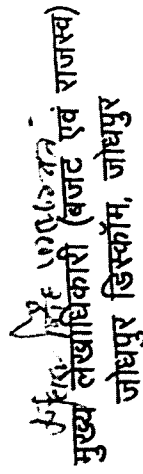 मुख्य लेखाधिकारी (बजट एवं राजस्व)
जोधपुर डिस्कॉम, जोधपुर